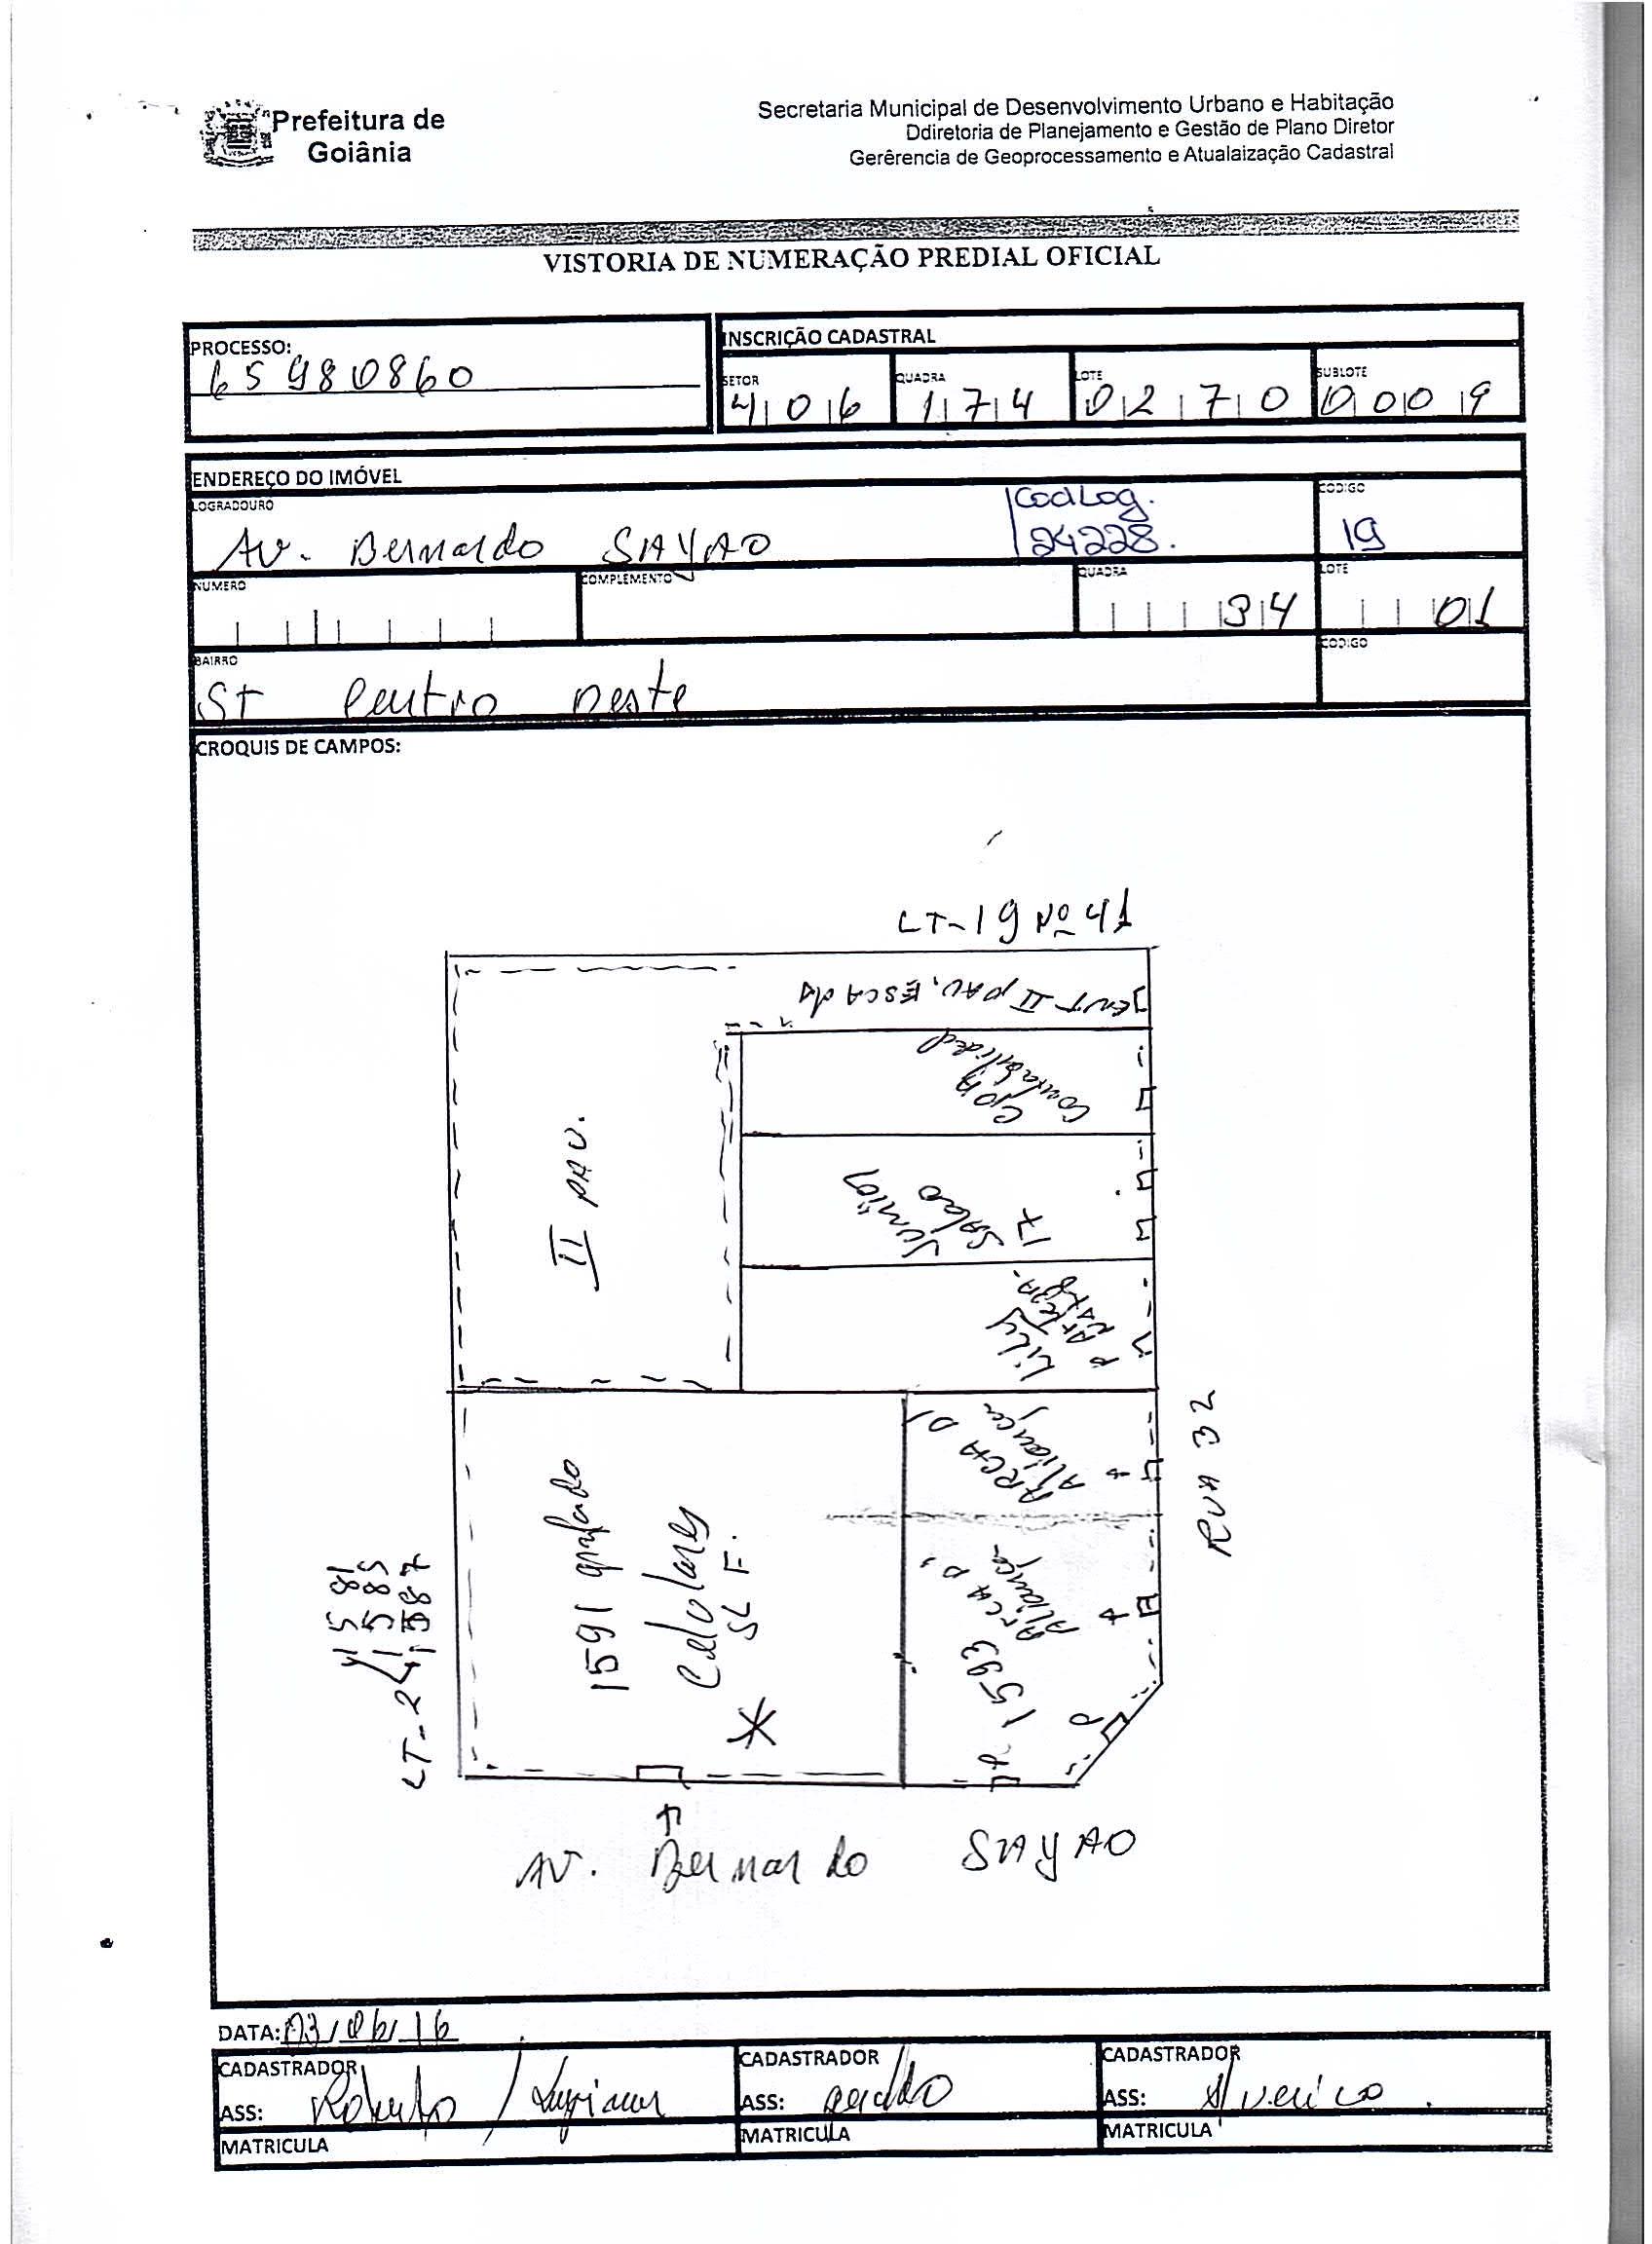 Prefeitura de
Goiânia
Secretaria Municipal de Desenvolvimento Urbano e Habitação
Ddiretoria de Planejamento e Gestão de Plano Diretor
Gerêrencia de Geoprocessamento e Atualaização Cadastral
VISTORIA DE NUMERAÇÃO PREDIAL OFICIAL
PROCESSO:
65980860
INSCRIÇÃO CADASTRAL
SETOR QUADRA LOTE SUBLOTE
406 174 0270 0009
ENDEREÇO DO IMÓVEL
LOGRADOURO CODIGO
Av. Bernardo SAYAO
CodLog.
24228.
19
NUMERO COMPLEMENTO QUADRA LOTE
34 01
BAIRRO CODIGO
ST Centro Oeste
CROQUIS DE CAMPOS:
LT-19 Nº 41
ENT II PAV. ESCADA
Contabilidad
II PAV.
Junior
Salao
17
Lily
ARCA D'
Aliança
RUA 32
1591 grafado
Celulares
SL F.
1593 ARCA D'
Aliança
LT-2
1581
1585
1587
AV. Bernardo SAYAO
DATA: 03/06/16
CADASTRADOR CADASTRADOR CADASTRADOR
ASS: Roberto / ASS: ASS:
MATRICULA MATRICULA MATRICULA